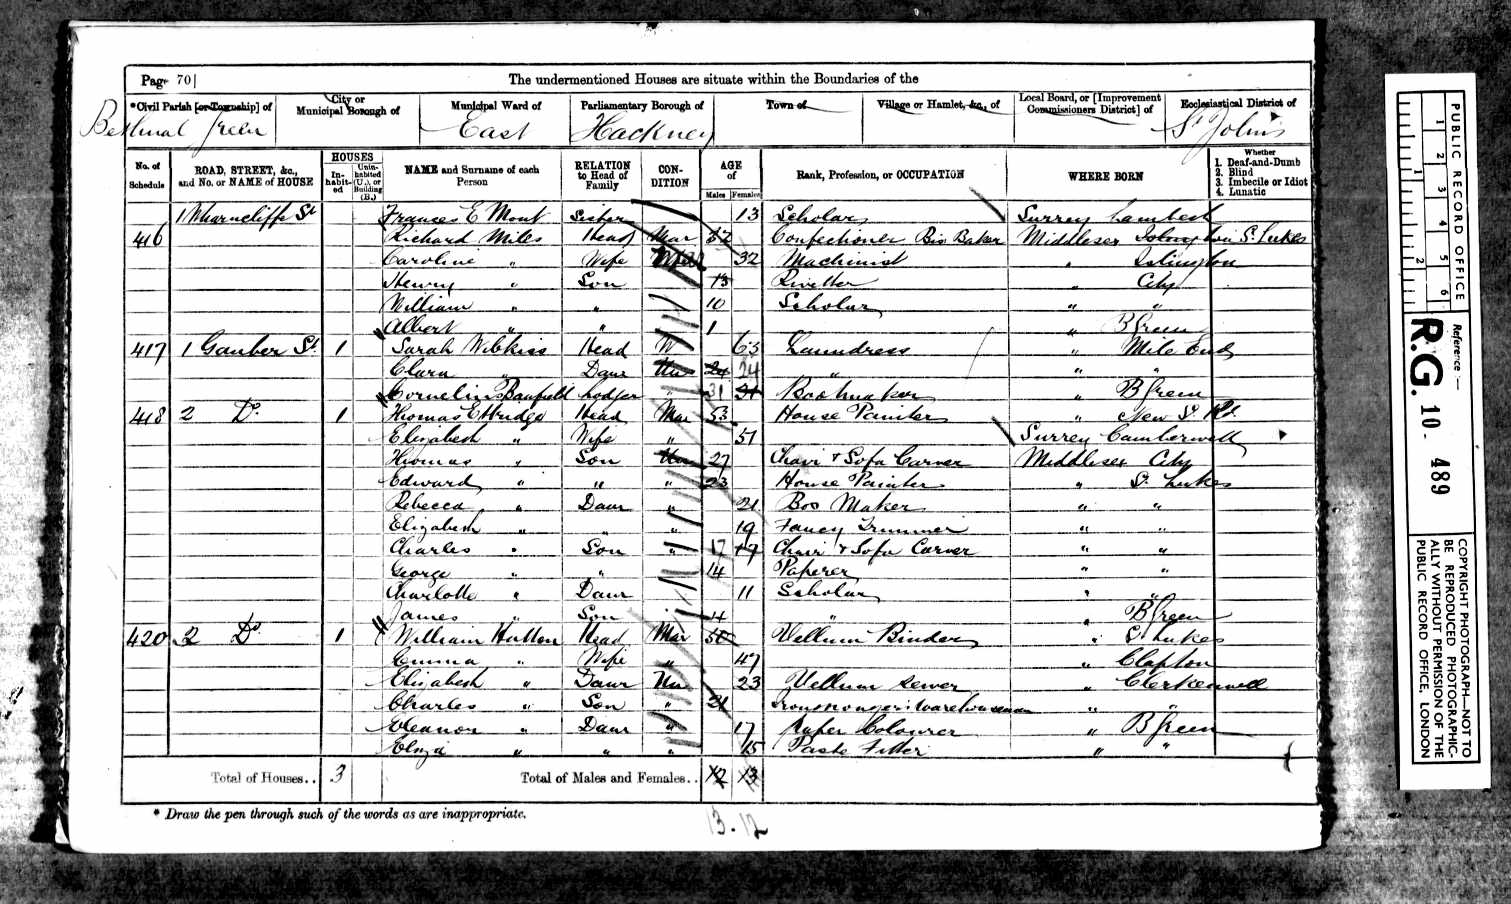 Page 70
The undermentioned Houses are situate within the Boundaries of the
*Civil Parish [or Township] of
City or Municipal Borough of
Municipal Ward of
Parliamentary Borough of
Town of
Village or Hamlet, &c., of
Local Board, or [Improvement Commissioners District] of
Ecclesiastical District of
Bethnal Green East Hackney St John's
No. of Schedule
ROAD, STREET, &c., and No. or NAME of HOUSE
HOUSES
In-habit-ed
Unin-habited (U.), or Building (B.)
NAME and Surname of each Person
RELATION to Head of Family
CON-DITION
AGE of
Males Females
Rank, Profession, or OCCUPATION
WHERE BORN
Whether
1. Deaf-and-Dumb
2. Blind
3. Imbecile or Idiot
4. Lunatic
1 Wharncliffe St Frances E Mont Sister 13 Scholar Surrey Lambeth
416 Richard Miles Head Mar Confectioner Bis Baker Middlesex St Lukes
Caroline " Wife 32 Machinist " Islington
Henry " Son 13 Rivetter " City
William " " 10 Scholar " "
Albert " " 1 " B Green
417 1 Gauber St. 1 Sarah Wibkiss Head W 63 Laundress " Mile End
Clara " Daur Un 24 24 " " "
Cornelius Banfield Lodger " 31 31 Bootmaker " B Green
418 2 Do 1 Thomas Ettridge Head Mar 53 House Painter " New St. Rd.
Elizabeth " Wife " 51 Surrey Camberwell
Thomas " Son Un 27 Chair & Sofa Carver Middlesex City
Edward " " " 23 House Painter " St Lukes
Rebecca " Daur " 21 Box Maker " "
Elizabeth " " " 19 Fancy Trimmer " "
Charles " Son " 17 17 Chair & Sofa Carver " "
George " " 14 Paperer " "
Charlotte " Daur 11 Scholar " "
James " Son " " B Green
420 2 Do 1 William Hutton Head Mar 50 Vellum Binder " St Lukes
Emma " Wife " 47 " Clapton
Elizabeth " Daur Un 23 Vellum Sewer " Clerkenwell
Charles " Son " 21 Ironmongers Warehouseman " "
Eleanor " Daur " 17 Paper Colourer " B Green
Eliza " " " 15 Paste Fitter " "
Total of Houses.. 3 Total of Males and Females.. 12 13
* Draw the pen through such of the words as are inappropriate.
13 . 12
PUBLIC RECORD OFFICE
1 2 3 4 5 6
1 2
Reference :-
R.G. 10 489
COPYRIGHT PHOTOGRAPH—NOT TO BE REPRODUCED PHOTOGRAPHICALLY WITHOUT PERMISSION OF THE PUBLIC RECORD OFFICE, LONDON